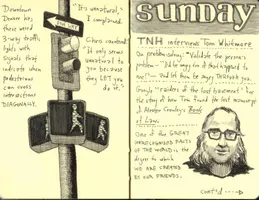 Downtown
Denver has
these weird
3-way traffic
lights with
signals that
indicate when
pedestrians
can cross
intersections
DIAGONALLY.
ONE WAY
"It's unnatural,"
I complained.
Chris countered
"It only seems
unnatural to
you because
they LET you
do it."
sunday
TNH interviews Tom Whitmore
On problem solving: "Validate the person's
problem - 'I'd be angry too if that happened to
me!' - and let them be angry THROUGH you.
Google "raiders of the lost basement" for
the story of how Tom found the lost manuscript
of Aleister Crowley's Book
of Law.
One of the GREAT
UNRECOGNIZED FACTS
OF THE WORLD is the
degree to which
WE ARE CREATED
BY OUR FRIENDS.
cont'd